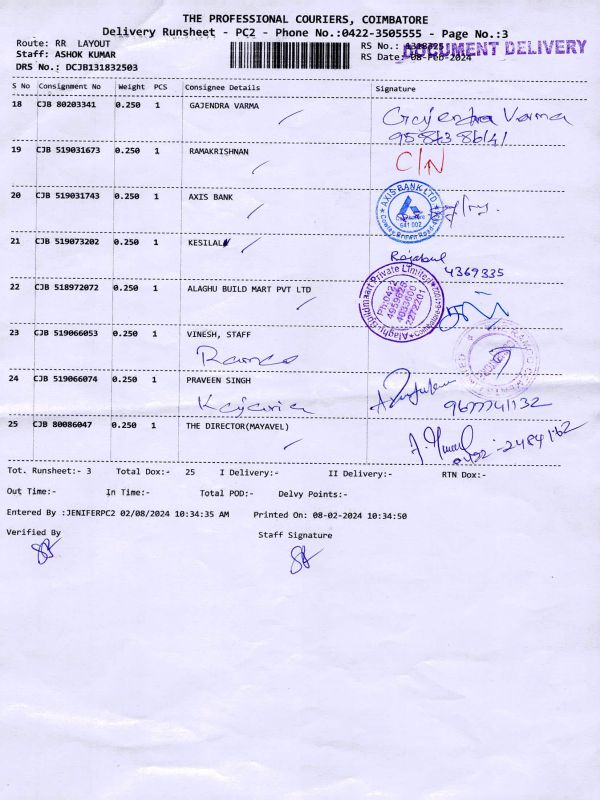 THE PROFESSIONAL COURIERS, COIMBATORE
Delivery Runsheet - PC2 - Phone No.:0422-3505555 - Page No.:3
Route: RR LAYOUT
RS No.: 1318325
DOCUMENT DELIVERY
Staff: ASHOK KUMAR
RS Date: 08-Feb-2024
DRS No.: DCJB131832503
S No Consignment No Weight PCS Consignee Details Signature
18 CJB 80203341 0.250 1 GAJENDRA VARMA Gajendra Varma
19 CJB 519031673 0.250 1 RAMAKRISHNAN C/N
20 CJB 519031743 0.250 1 AXIS BANK
AXIS BANK LTD
641 002
21 CJB 519073202 0.250 1 KESILAL Rajabul
4369335
22 CJB 518972072 0.250 1 ALAGHU BUILD MART PVT LTD
Alaghu Buildmaart Private Limited
Ph:0422
23 CJB 519066053 0.250 1 VINESH, STAFF
Ramco
24 CJB 519066074 0.250 1 PRAVEEN SINGH
Kajaria 9677741132
25 CJB 80086047 0.250 1 THE DIRECTOR(MAYAVEL)
0422-2484162
Tot. Runsheet:- 3 Total Dox:- 25 I Delivery:- II Delivery:- RTN Dox:-
Out Time:- In Time:- Total POD:- Delvy Points:-
Entered By :JENIFERPC2 02/08/2024 10:34:35 AM Printed On: 08-02-2024 10:34:50
Verified By Staff Signature